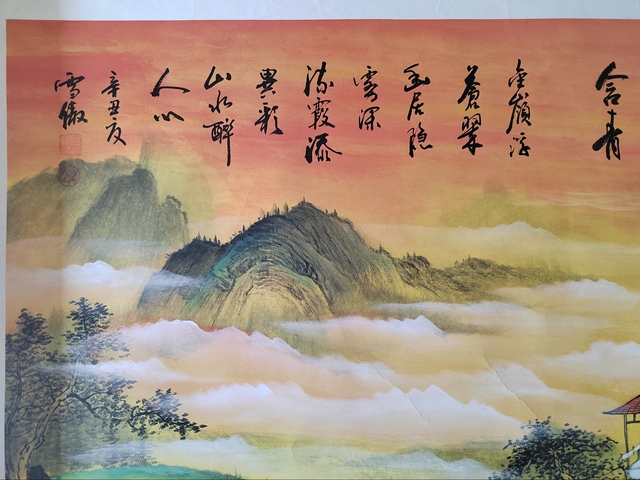 含青
金嶺浮
蒼翠
幽居隐
雲深
流霞添
異彩
山水醉
人心
辛丑夏
雪傲